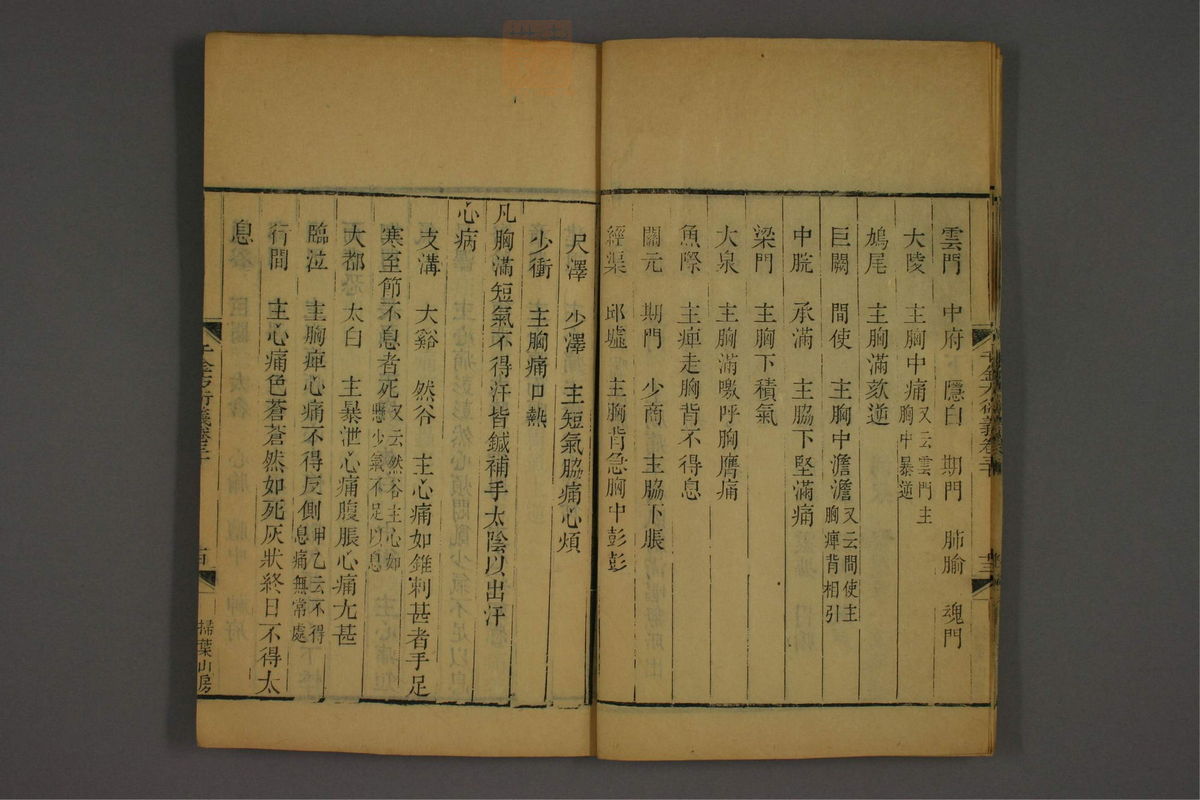 雲門　中府　隱白　期門　肺腧　魂門
大陵　主胸中痛又云雲門主胸中暴逆
鳩尾　主胸滿欬逆
巨闕　間使　主胸中澹澹又云間使主胸痺背相引
中脘　承滿　主脇下堅滿痛
梁門　主胸下積氣
大泉　主胸滿嗷呼胸膺痛
魚際　主痺走胸背不得息
關元　期門　少商　主脇下脹
經渠　邱墟　主胸背急胸中彭彭
尺澤　少澤　主短氣脇痛心煩
少衝　主胸痛口熱
凡胸滿短氣不得汗皆鍼補手太陰以出汗
心病
支溝　大谿　然谷　主心痛如錐刺甚者手足
寒至節不息者死又云然谷主心如懸少氣不足以息
大都　太白　主暴泄心痛腹脹心痛尤甚
臨泣　主胸痺心痛不得反側甲乙云不得息痛無常處
行間　主心痛色蒼蒼然如死灰狀終日不得太
息
千金方衍義卷三十
掃葉山房